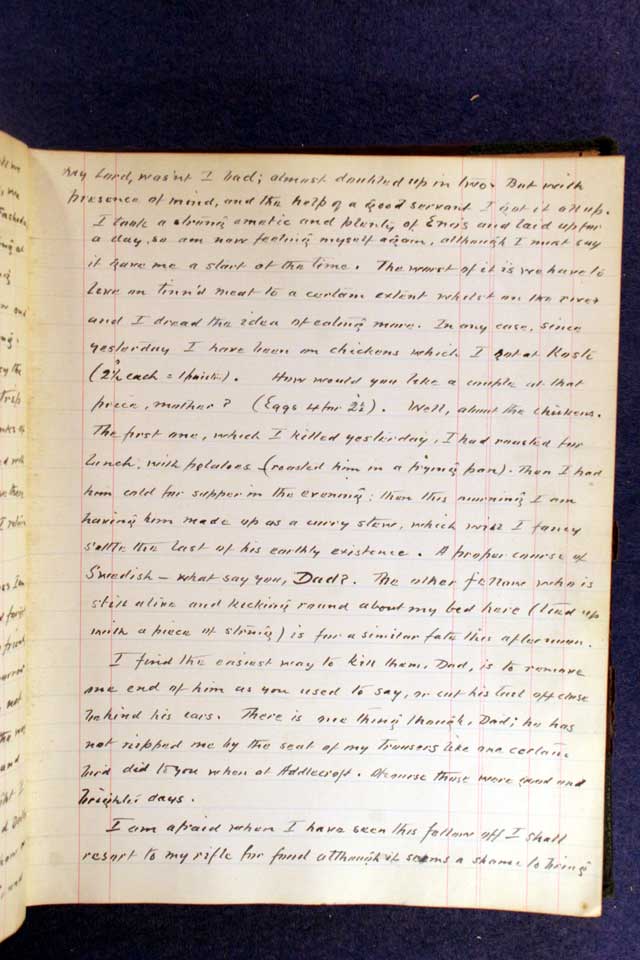 My Lord, wasn't I bad; almost doubled up in two. But with
presence of mind, and the help of a good servant I got it all up.
I took a strong emetic and plenty of Eno's and laid up for
a day, so am now feeling myself again, although I must say
it gave me a start at the time. The worst of it is we have to
live on tinn'd meat to a certain extent whilst on the river
and I dread the idea of eating more. In any case, since
yesterday I have been on chickens which I got at Kosti
(2½ each = 1 piastre). How would you like a couple at that
price, mother? (Eggs 4 for 2½). Well, about the chickens.
The first one, which I killed yesterday, I had roasted for
lunch, with potatoes (roasted him in a frying pan). Then I had
him cold for supper in the evening; then this morning I am
having him made up as a curry stew, which will I fancy
settle the last of his earthly existence. A proper course of
Swedish - what say you, Dad? The other fellow who is
still alive and kicking round about my bed here (tied up
with a piece of string) is for a similar fate this afternoon.
I find the easiest way to kill them, Dad, is to remove
one end of him as you used to say, or cut his tail off close
behind his ears. There is one thing though, Dad; he has
not nipped me by the seat of my trousers like one certain
bird did to you when at Addlecroft. Of course those were good and
brighter days.
I am afraid when I have seen this fellow off I shall
resort to my rifle for food although it seems a shame to bring